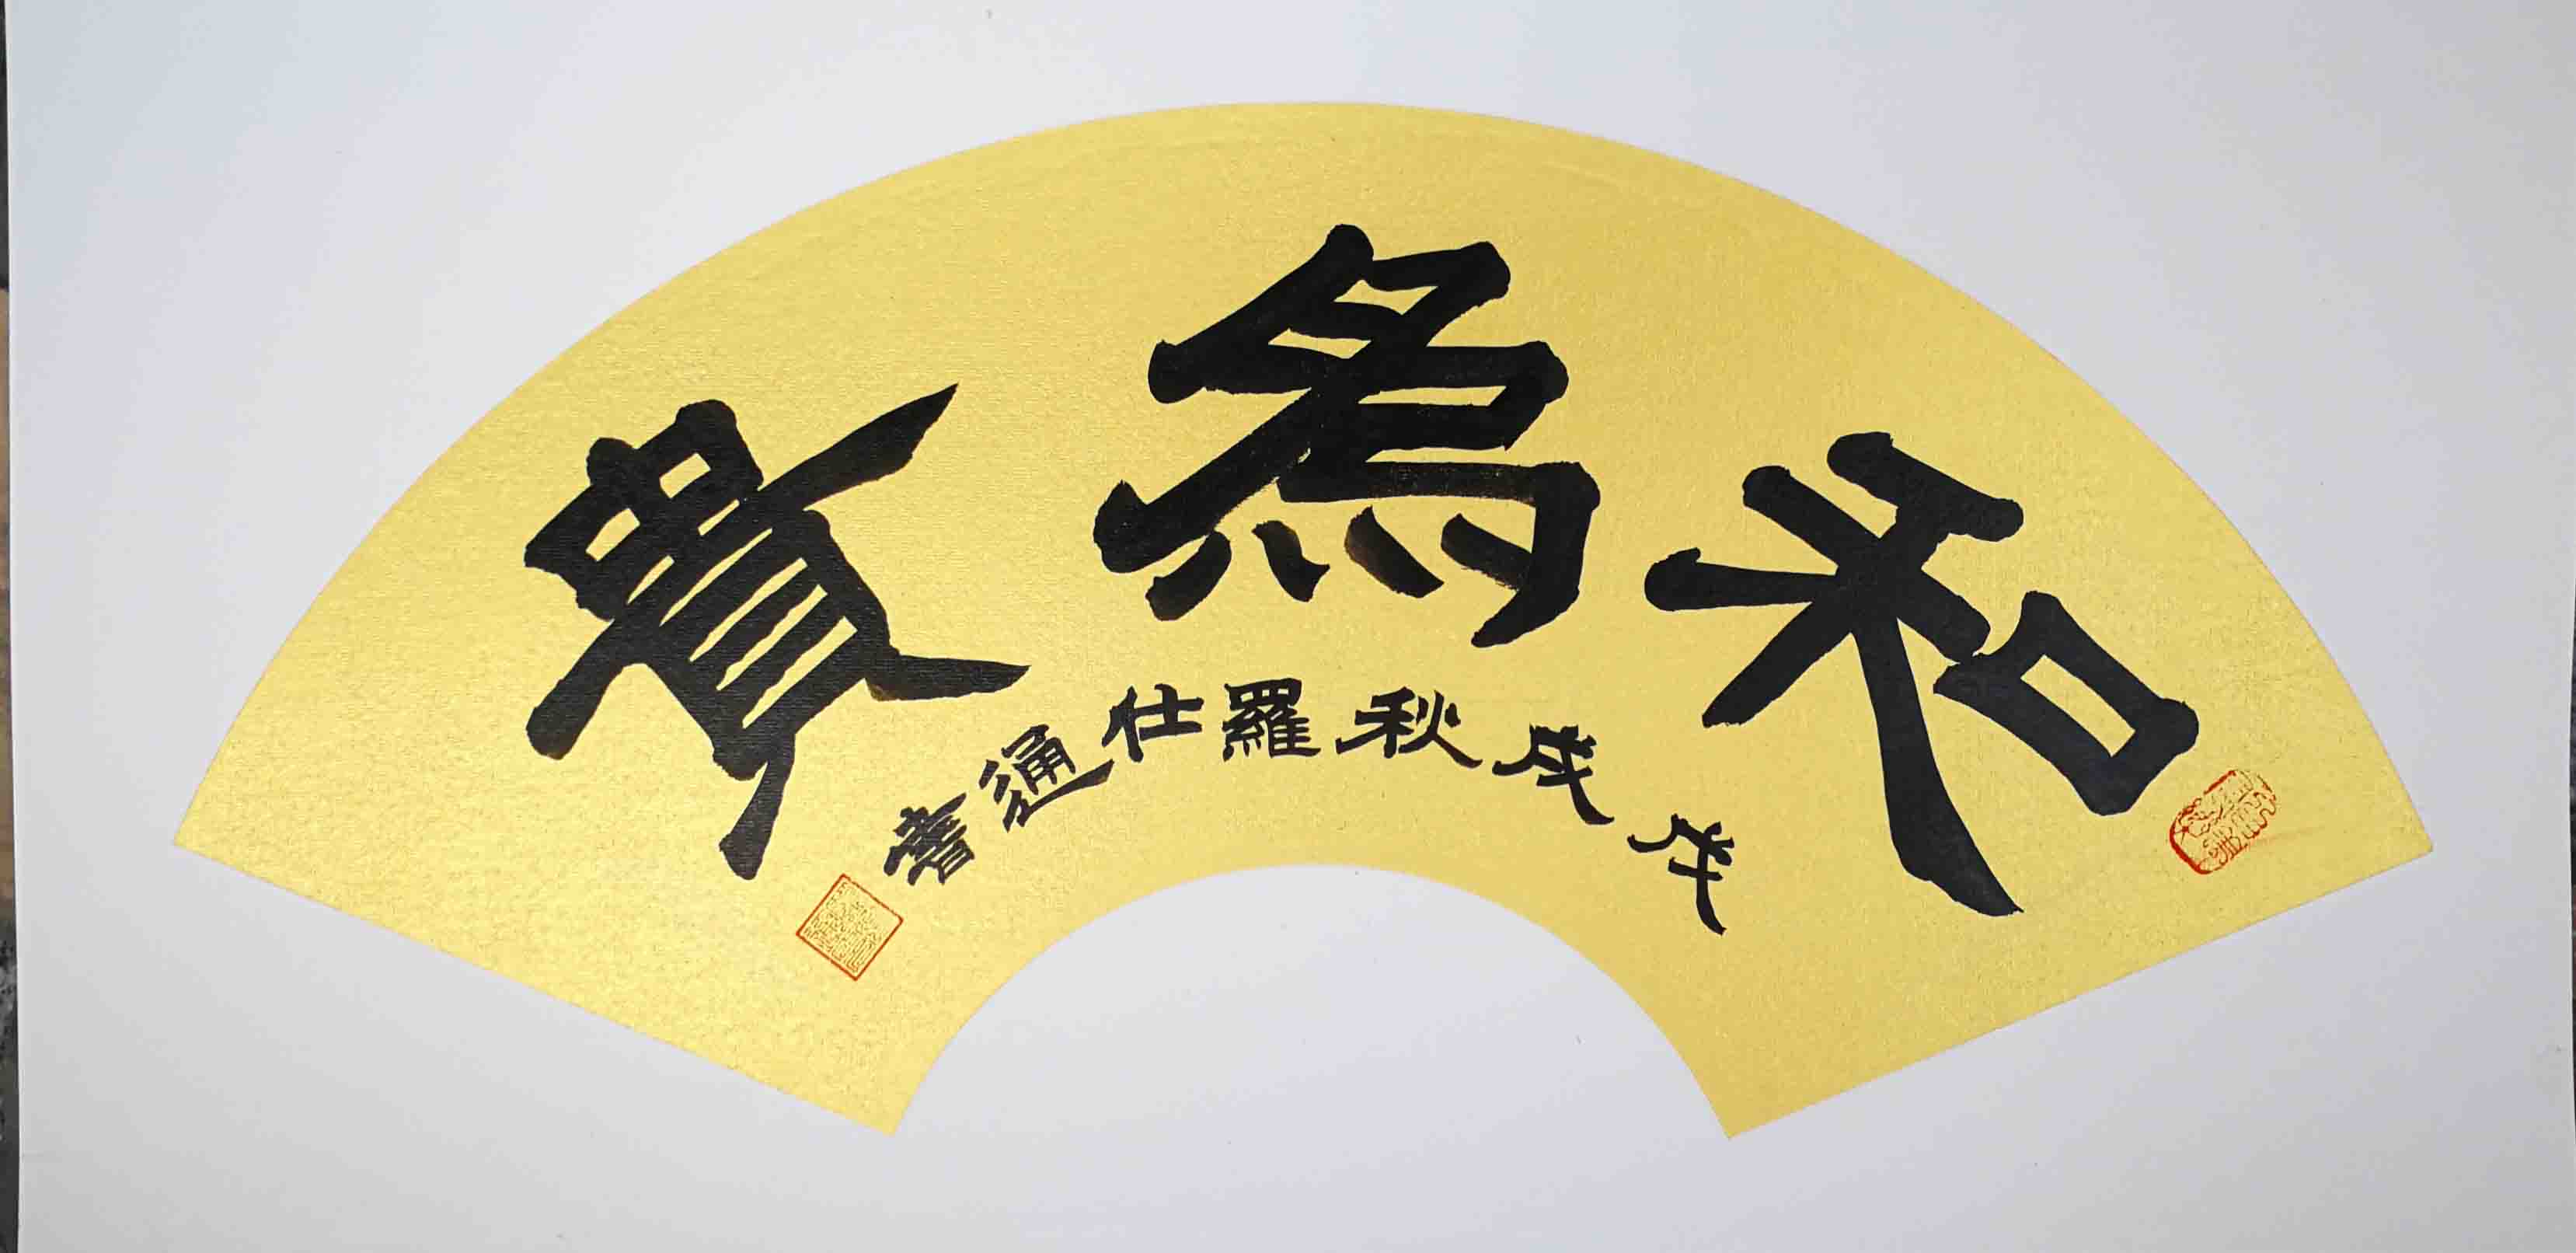 和為貴
戊戌秋羅仕通書